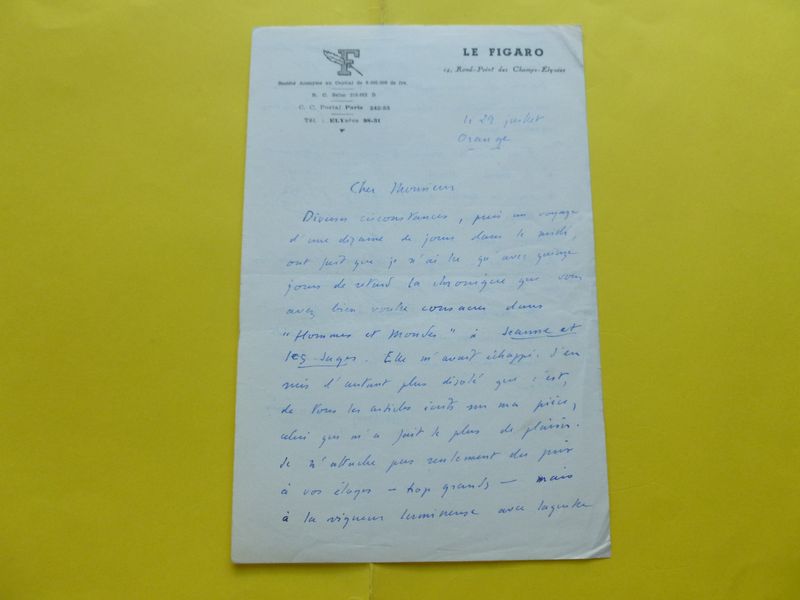 F
LE FIGARO
14, Rond-Point des Champs-Élysées
Société Anonyme au Capital de 6.000.000 de frs.
R. C. Seine
C. C. Postal Paris 242-53
Tél. : ELYsées 98-31
le 29 juillet
Orange
Cher Monsieur
Diverses circonstances, puis un voyage
d'une dizaine de jours dans le midi,
ont fait que je n'ai lu qu'avec quinze
jours de retard la chronique que vous
avez bien voulu consacrer dans
"Hommes et Mondes" à Jeanne et
les Juges. Elle m'avait échappé. J'en
suis d'autant plus désolé que c'est,
de tous les articles écrits sur ma pièce,
celui qui m'a fait le plus de plaisir.
Je n'attache pas seulement du prix
à vos éloges – trop grands – mais
à la vigueur lumineuse avec laquelle